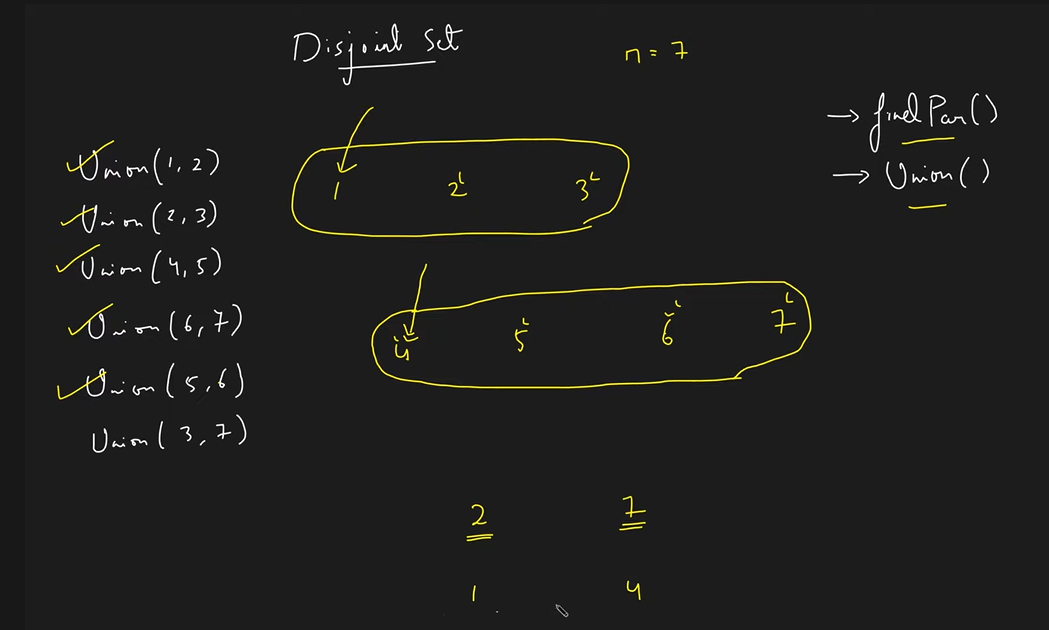 Disjoint Set
n = 7
→ findPar()
→ Union()
Union(1, 2)
Union(2, 3)
Union(4, 5)
Union(6, 7)
Union(5, 6)
Union(3, 7)
1 2 3
4 5 6 7
2 7
1 4